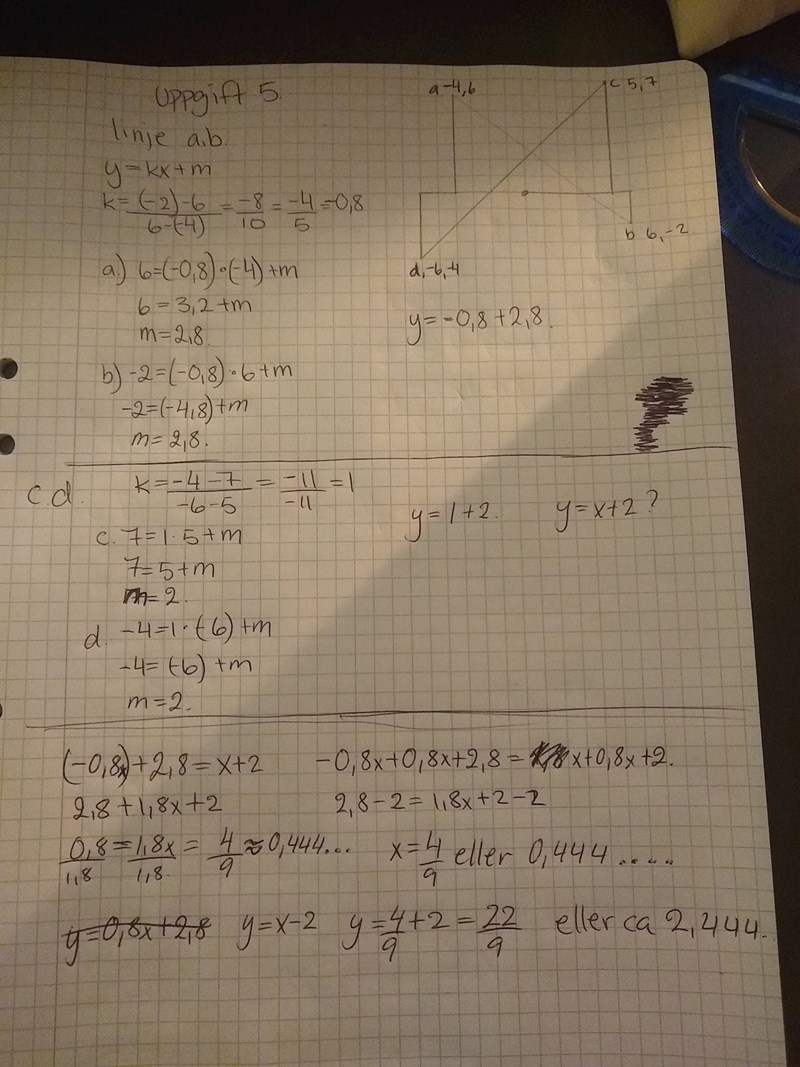 Uppgift 5.
linje a.b.
y=kx+m
k= (-2)-6 / 6-(-4) = -8/10 = -4/5 =-0,8
a.) 6=(-0,8)·(-4)+m
6=3,2+m
m=2,8.
b) -2=(-0,8)·6+m
-2=(-4,8)+m
m=2,8.
a -4,6
c 5,7
b 6,-2
d,-6,-4
y=-0,8+2,8.
c.d.
k= -4-7 / -6-5 = -11/-11 =1
c. 7=1·5+m
7=5+m
m=2.
d. -4=1·(-6)+m
-4=(-6)+m
m=2.
y=1+2. y=x+2?
(-0,8x)+2,8=x+2 -0,8x+0,8x+2,8= x+0,8x+2.
2,8+1,8x+2 2,8-2=1,8x+2-2
0,8/1,8 = 1,8x/1,8 = 4/9 ≈0,444... x=4/9 eller 0,444.....
y=0,8x+2,8 y=x-2 y=4/9+2=22/9 eller ca 2,444.